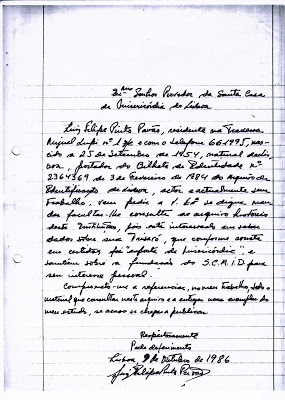 Exmo Senhor Provedor da Santa Casa
da Misericórdia de Lisboa
Luiz Filipe Pinto Pavão, residente na Travessa
Miguel Lupi nº 1 e com o telefone 661995, nas-
cido a 25 de Setembro de 1954, natural de Lis-
boa, portador do Bilhete de Identidade nº
2364369 de 3 de Fevereiro de 1984 do Arquivo de
Identificação de Lisboa, actor e actualmente sem
trabalho, vem pedir a V. Exª se digne man-
dar facultar-lhe consulta ao arquivo histórico
desta Instituição, pois está interessado em saber
dados sobre sua Trisavó, que conforme consta
em certidões foi "exposta da misericórdia", e
também sobre a fundação do S.C.M.L. para
seu interesse pessoal.
Compromete-se a referenciar, no seu trabalho, todo o
material que consultar neste arquivo e a entregar um exemplar do
seu estudo, se acaso se chegar a publicar.
Respeitosamente
Pede deferimento
Lisboa, 9 de Outubro de 1986
Luiz Filipe Pinto Pavão